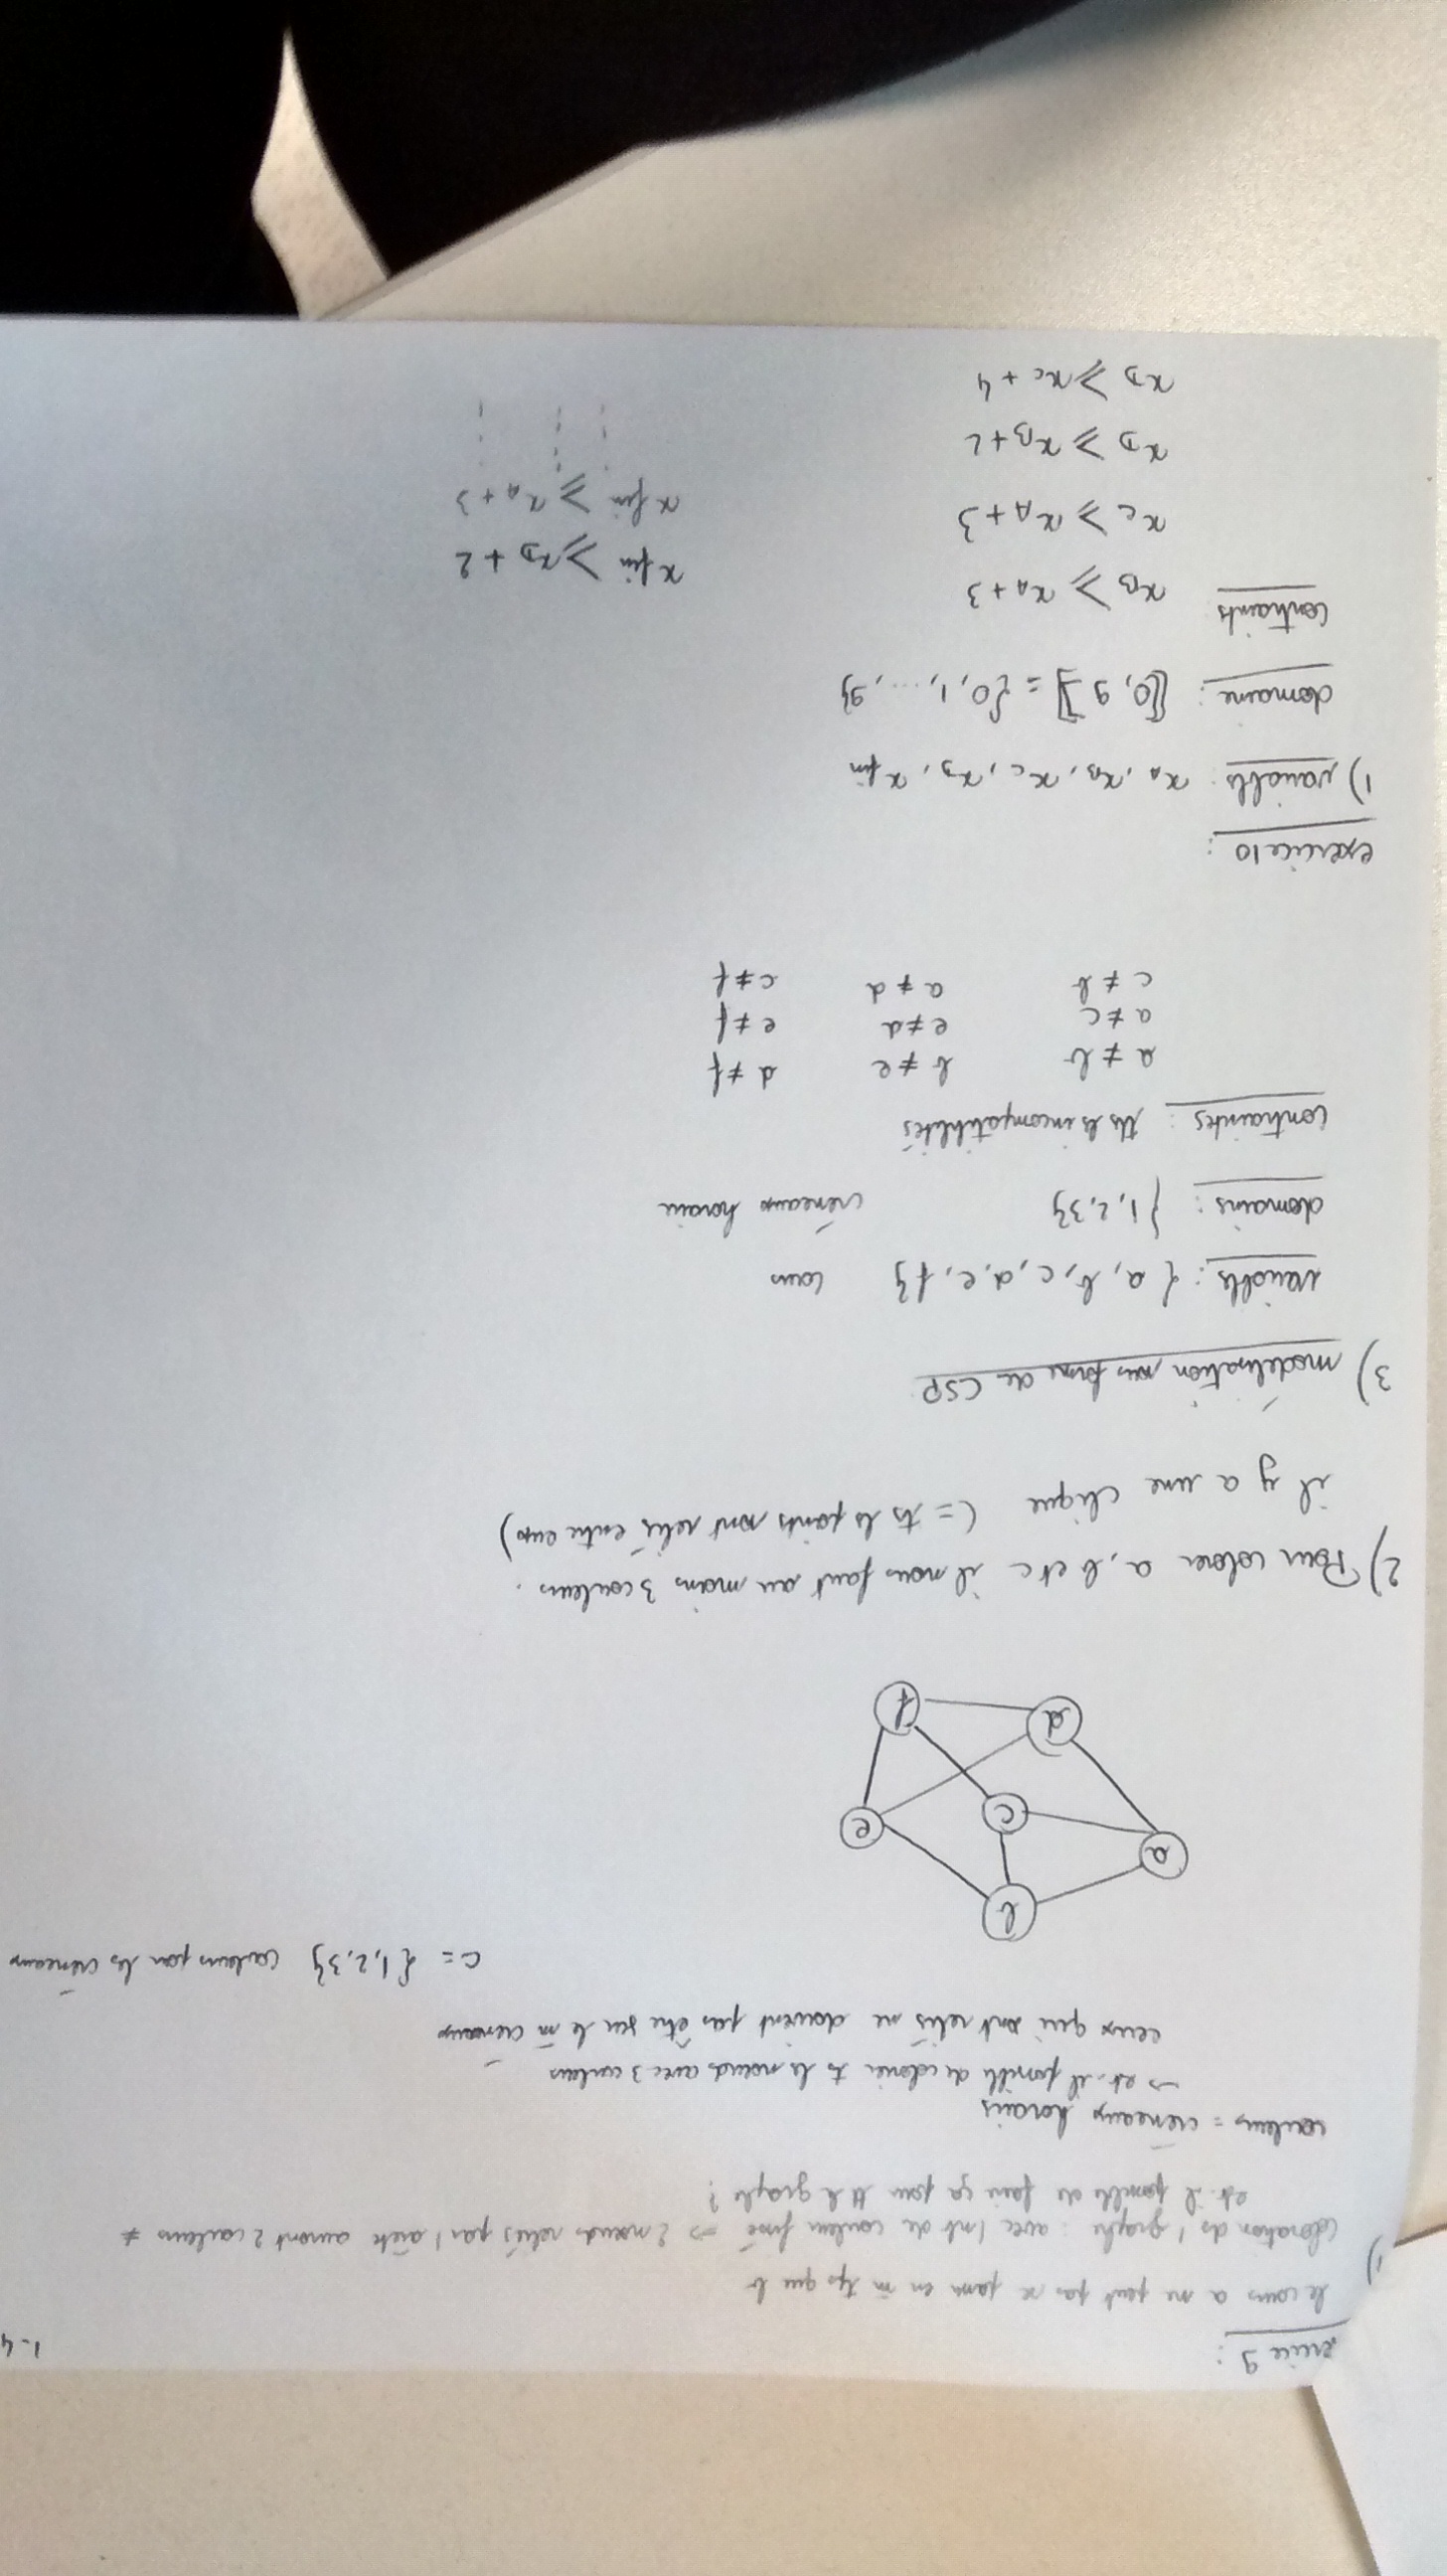 exercice 9 :
1-4
le cours a ne peut pas se passer en m̄ tps que b
1) coloration ds 1 graphe : avec 1 nb de couleur fixé ⇒ 2 nœuds reliés par 1 arête auront 2 couleurs ≠
est-il possible de faire ça pour tt le graphe ?
couleurs = créneaux horaires
→ est-il possible de colorier ts les nœuds avec 3 couleurs
ceux qui sont reliés ne doivent pas être sur le m̄ créneaux
C = {1,2,3} couleurs pour les créneaux
b
a
c
e
d
f
2) Pour colorer a, b et c il nous faut au moins 3 couleurs.
il y a une clique (= ts les points sont reliés entre eux)
3) modélisation sous forme de CSP
variables : {a, b, c, d, e, f} cours
domaines : {1,2,3} créneaux horaires
contraintes : tts les incompatibilités
a ≠ b b ≠ e d ≠ f
a ≠ c e ≠ d e ≠ f
c ≠ b a ≠ d c ≠ f
exercice 10 :
1) variables : xA, xB, xC, xD, x fin
domaine : ⟦0, 9⟧ = {0, 1, ..., 9}
contraints xB ⩾ xA + 3 x fin ⩾ xD + 2
xC ⩾ xA + 3 x fin ⩾ xA + 3
xD ⩾ xB + 2
xD ⩾ xC + 4